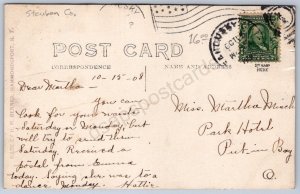 Steuben Co.
16 00
POST CARD
CORRESPONDENCE
NAME AND ADDRESS
10-15-08
Dear Martha,
You can
look for your
Saturday or Monday, but
will try to send them
Saturday. Received a
postal from Emma
today. Saying she was to a
dance Monday. Hattie
Miss. Martha Miesch
Park Hotel
Put in Bay
O.